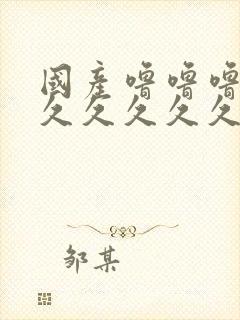 國產噜噜噜
久久久久久
邹某